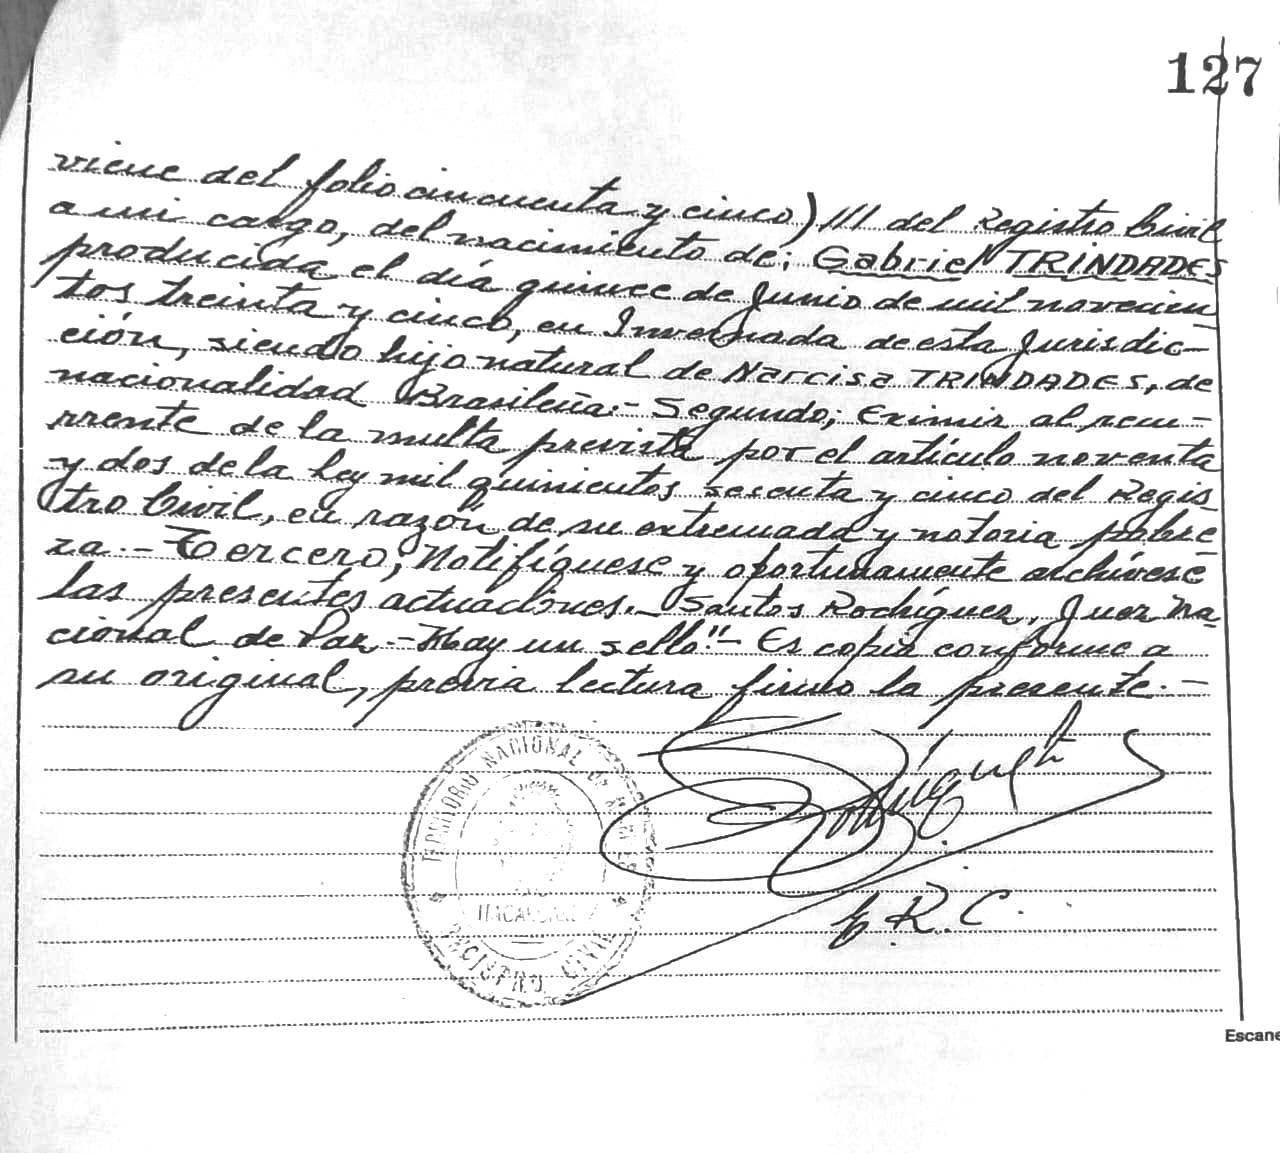 127
viene del folio cincuenta y cinco) /// del Registro Civil
a mi cargo, del nacimiento de; Gabriel TRINDADES
producida el día quince de Junio de mil novecien
tos treinta y cinco, en Invernada de esta Jurisdic-
ción, siendo hijo natural de Narcisa TRINDADES, de
nacionalidad Brasileña.- Segundo; Eximir al recu-
rrente de la multa prevista por el artículo noventa
y dos de la ley mil quinientos secenta y cinco del Regis
tro Civil, en razón de su extremada y notoria pobre-
za.- Tercero; Notifíquese y oportunamente archívese
las presentes actuaciones.- Santos Rochíguez, Juez Na-
cional de Paz.- Hay un sello"- Es copia conforme a
su original, previa lectura firmo la presente.-
TERRITORIO NACIONAL DE
REGISTRO CIVIL
E.R.C.
Escane